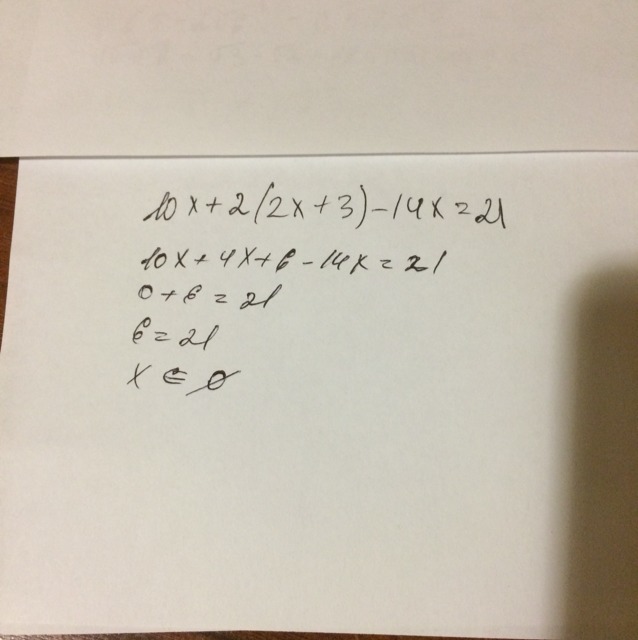 10x+2(2x+3)-14x=21
10x+4x+6-14x=21
0+6=21
6=21
x∈∅